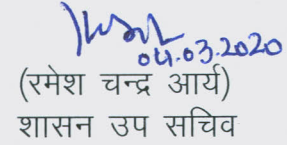 04.03.2020
(रमेश चन्द्र आर्य)
शासन उप सचिव